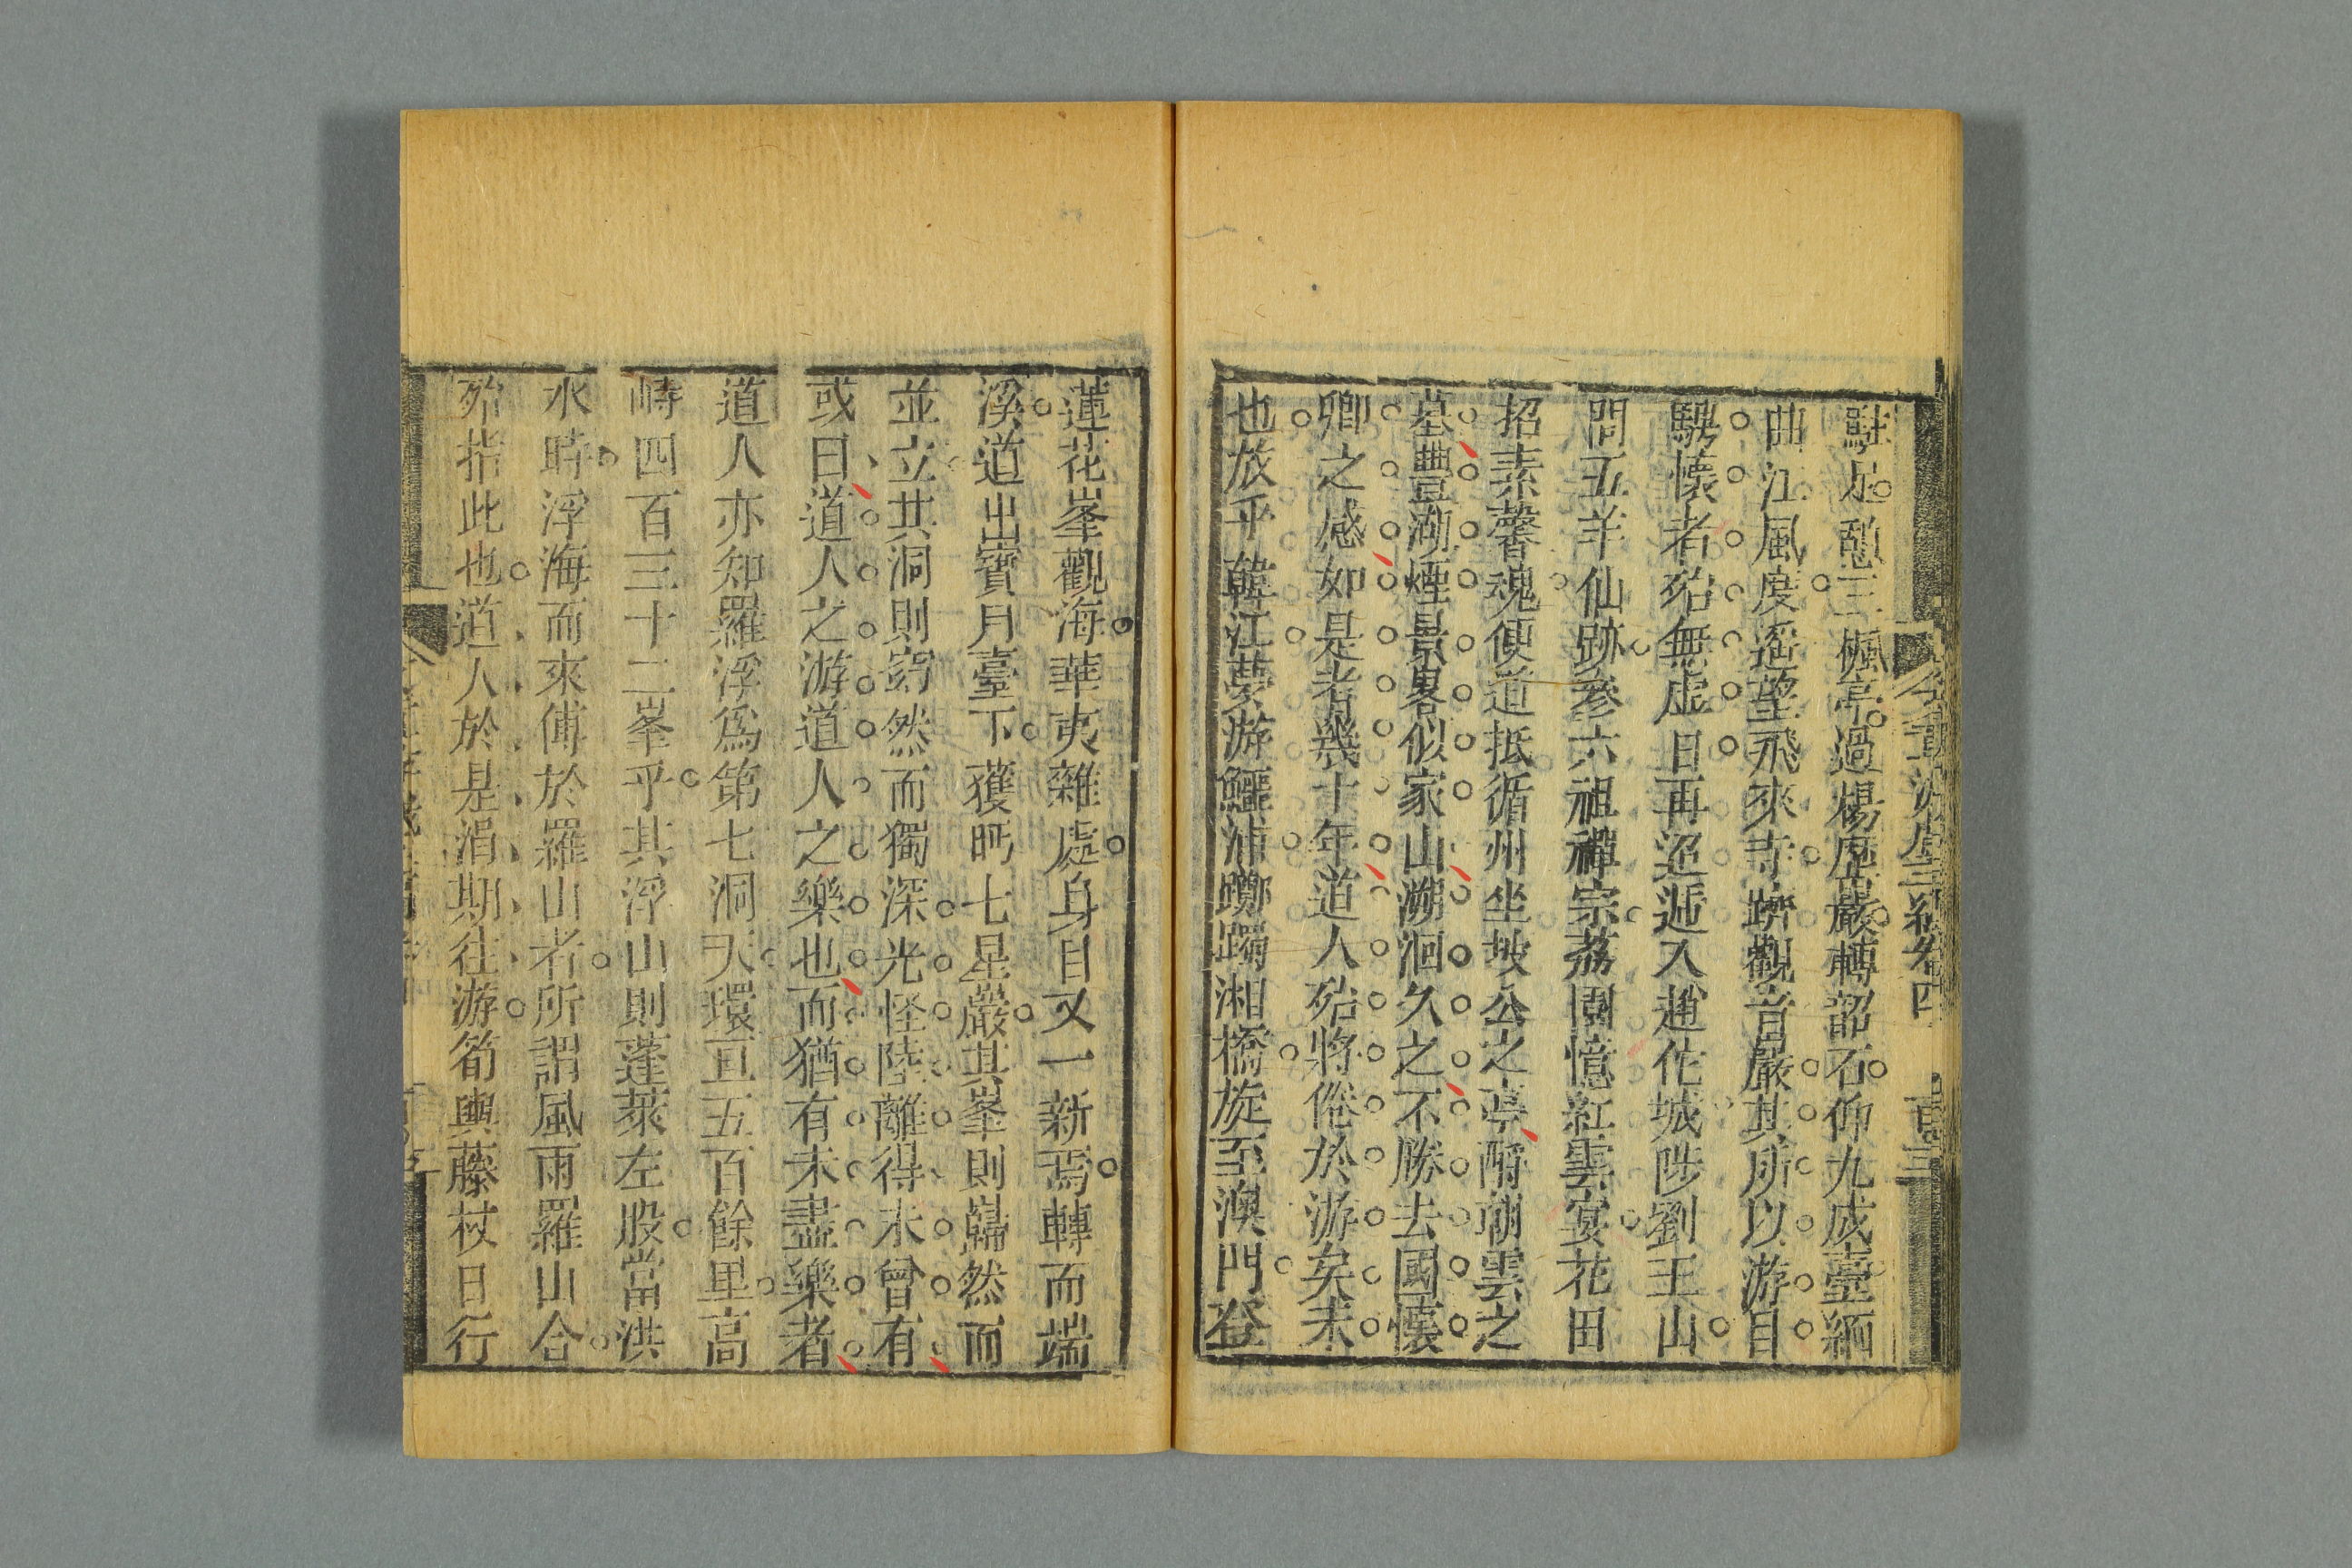 駐足憩三楓亭過楊歷巖轉韶石仰九成臺緬
曲江風度遥望飛來寺躋觀音巖其所以游目
騁懷者殆無虛日再迢遞入趙佗城陟劉王山
問五羊仙跡參六祖禪宗荔園憶紅雲宴花田
招素馨魂便道抵循州坐坡公之亭酹朝雲之
墓豐湖煙景畧似家山溯洄久之不勝去國懷
鄉之感如是者幾十年道人殆將倦於游矣未
也放乎韓江夢游鱷浦躑躅湘橋旋至澳門登
蓮花峯觀海華夷雜處身目又一新焉轉而端
溪道出寶月臺下獲眄七星巖其峯則巋然而
並立其洞則窈然而獨深光怪陸離得未曾有
或曰道人之游道人之樂也而猶有未盡樂者
道人亦知羅浮爲第七洞天環亘五百餘里高
峙四百三十二峯乎其浮山則蓬萊左股當洪
水時浮海而來傅於羅山者所謂風雨羅山合
殆指此也道人於是涓期往游筍輿藤杖日行